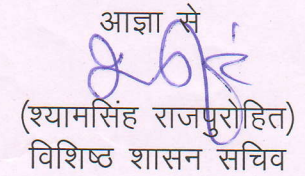 आज्ञा से
(श्यामसिंह राजपुरोहित)
विशिष्ठ शासन सचिव